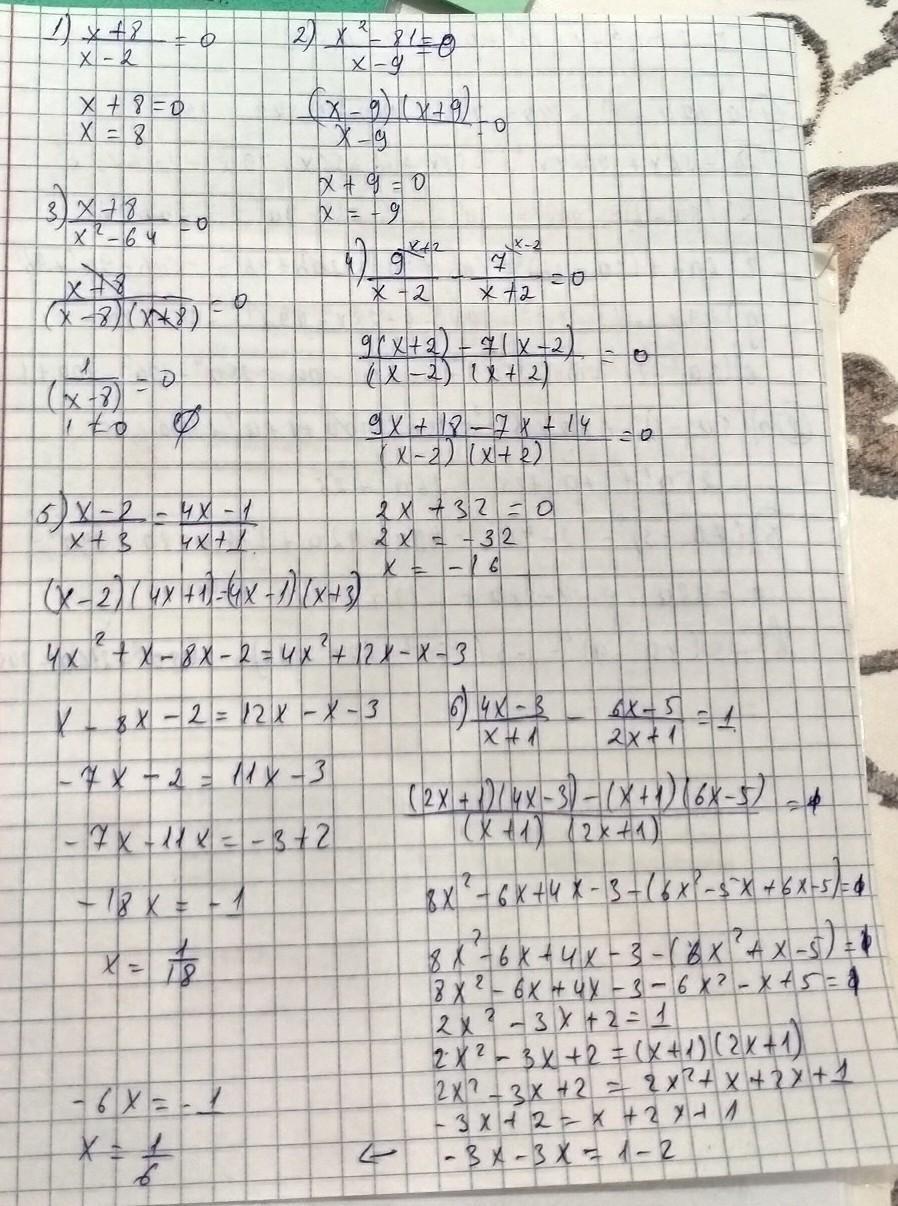 1) (x+8)/(x-2) = 0
x + 8 = 0
x = 8
2) (x² - 81)/(x-9) = 0
((x-9)(x+9))/(x-9) = 0
x + 9 = 0
x = -9
3) (x+8)/(x²-64) = 0
(x+8)/((x-8)(x+8)) = 0
(1/(x-8) = 0
1 ≠ 0 ∅
4) 9^(x+2)/(x-2) - 7^(x-2)/(x+2) = 0
(9(x+2) - 7(x-2))/((x-2)(x+2)) = 0
(9x+18-7x+14)/((x-2)(x+2)) = 0
2x + 32 = 0
2x = -32
x = -16
5) (x-2)/(x+3) = (4x-1)/(4x+1)
(x-2)(4x+1)=(4x-1)(x+3)
4x² + x - 8x - 2 = 4x² + 12x - x - 3
x - 8x - 2 = 12x - x - 3
-7x - 2 = 11x - 3
-7x - 11x = -3+2
-18x = -1
x = 1/18
6) (4x-3)/(x+1) - (6x-5)/(2x+1) = 1
((2x+1)(4x-3) - (x+1)(6x-5))/((x+1)(2x+1)) = 1
8x² - 6x + 4x - 3 - (6x² - 5x + 6x - 5) = 1
8x² - 6x + 4x - 3 - (6x² + x - 5) = 1
8x² - 6x + 4x - 3 - 6x² - x + 5 = 1
2x² - 3x + 2 = 1
2x² - 3x + 2 = (x+1)(2x+1)
2x² - 3x + 2 = 2x² + x + 2x + 1
-3x + 2 = x + 2x + 1
← -3x - 3x = 1 - 2
-6x = -1
x = 1/6